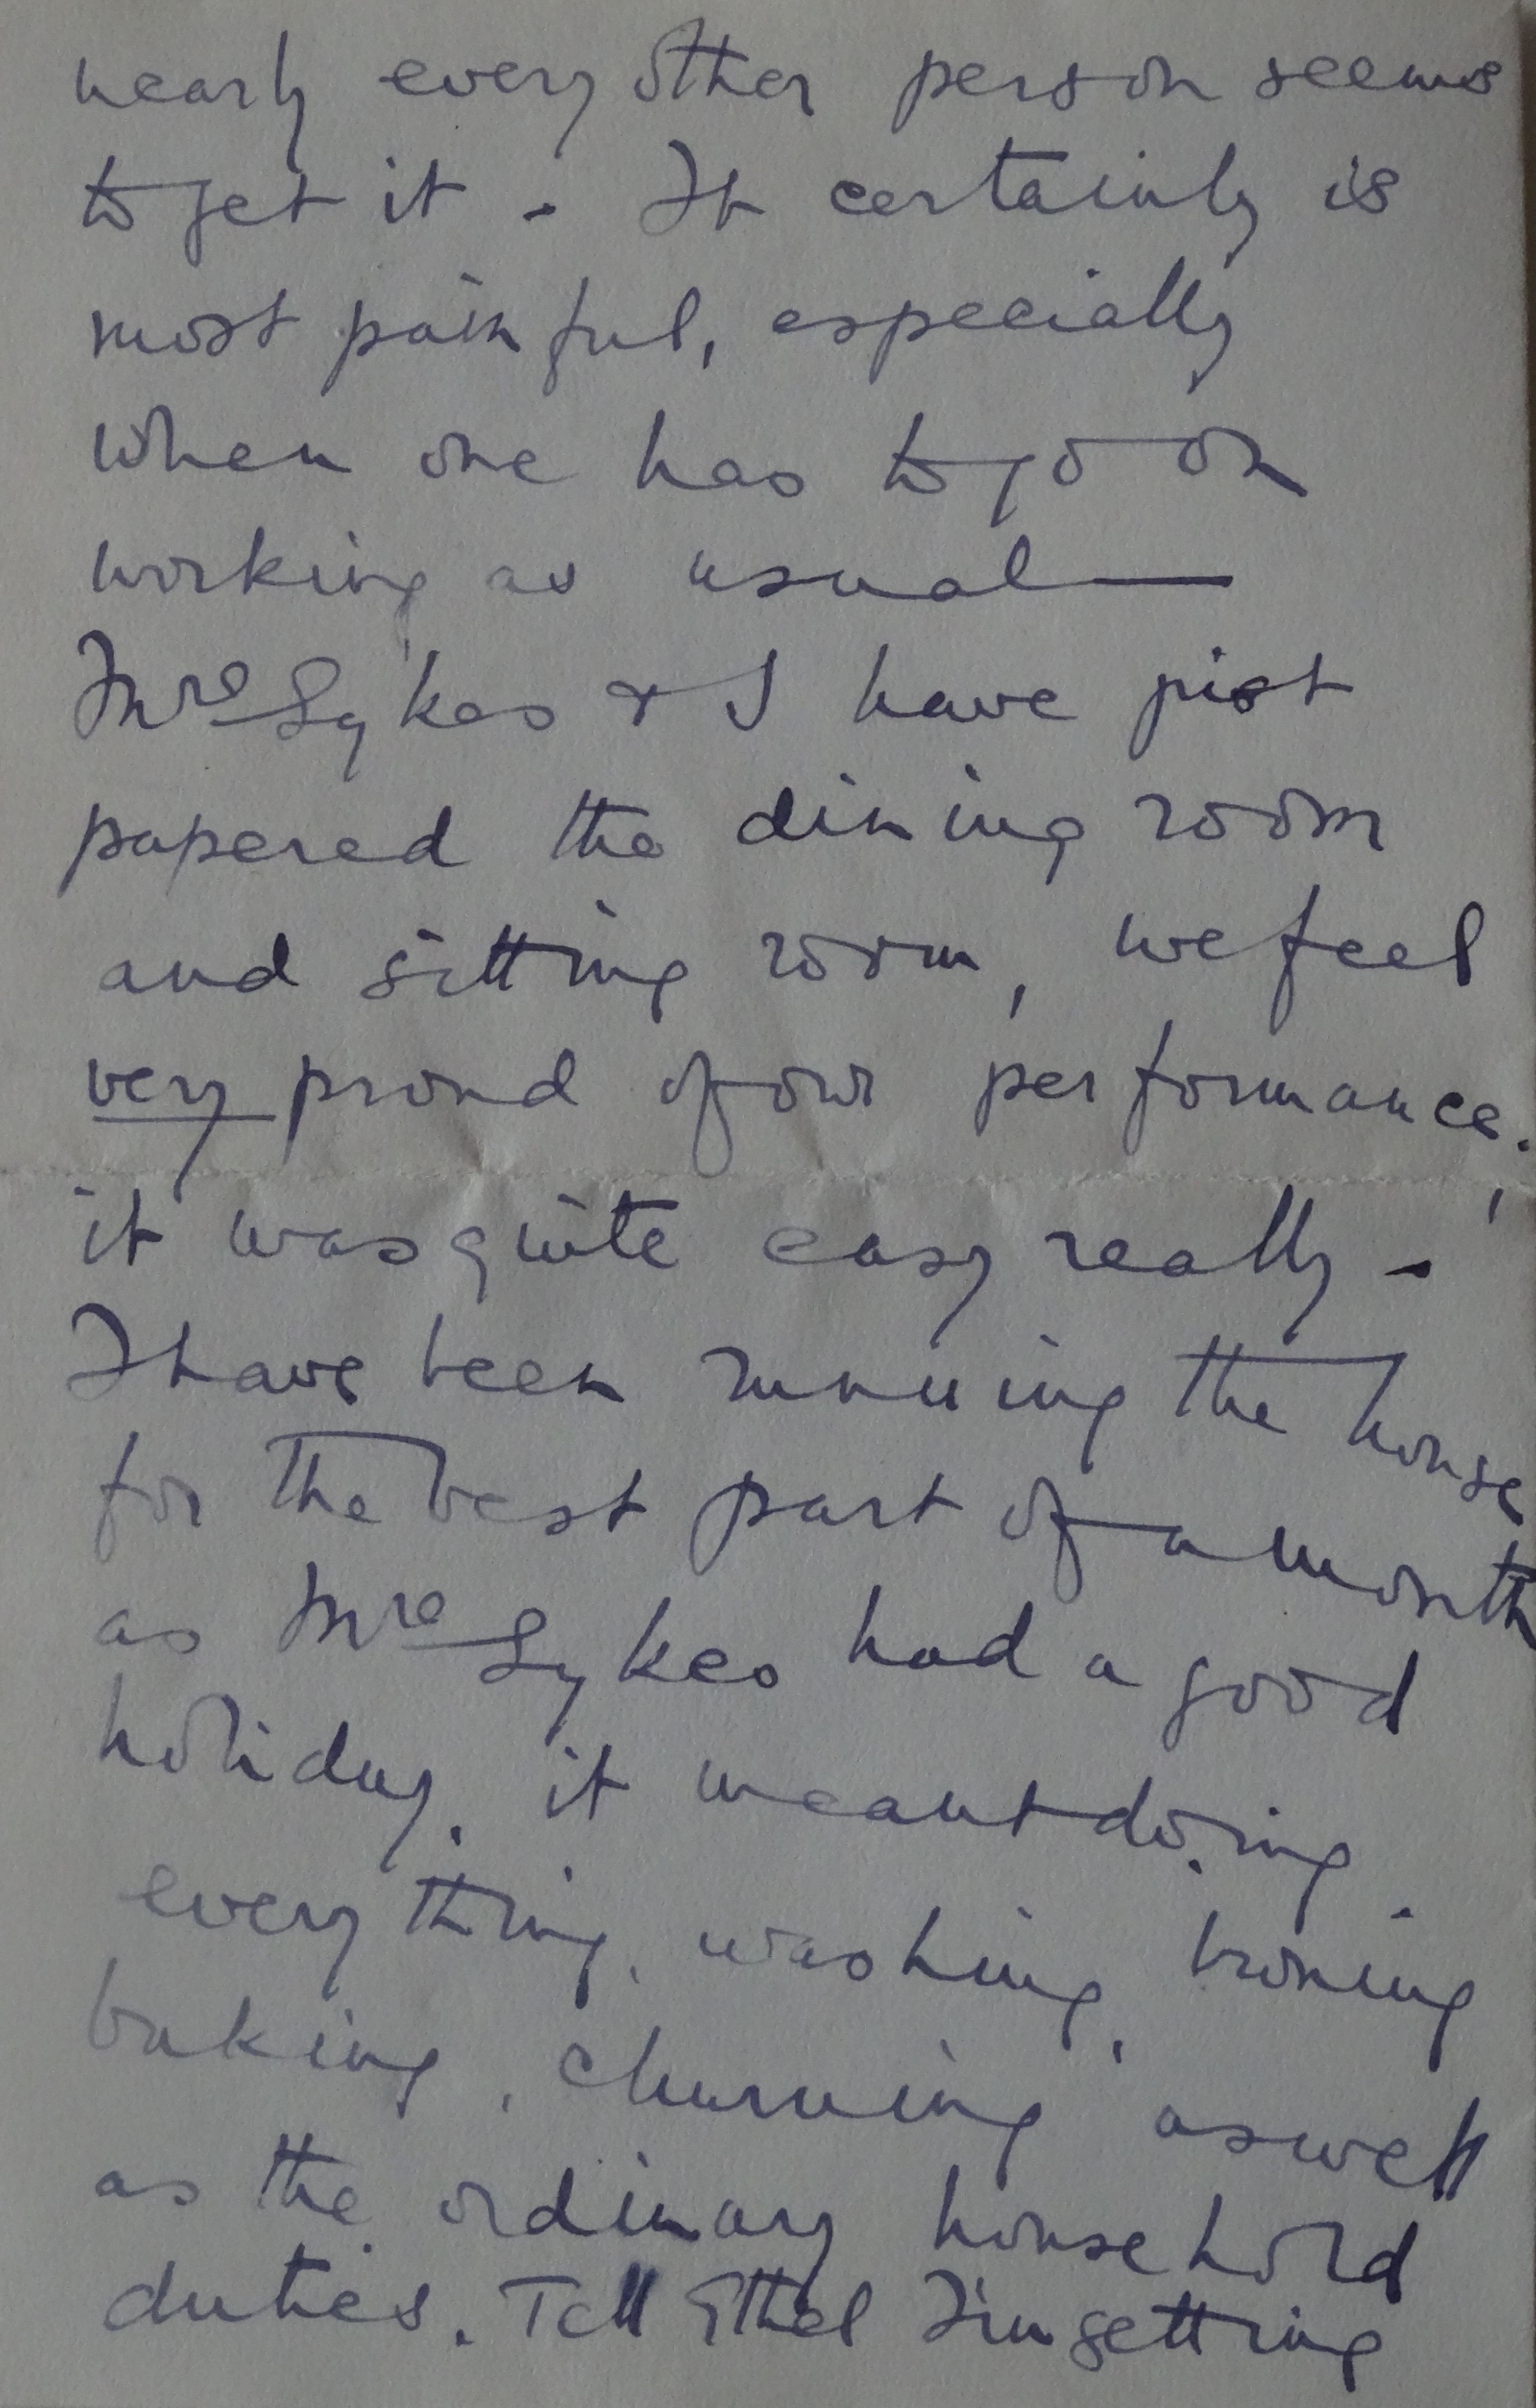 nearly every other person seems
to get it - It certainly is
most painful, especially
when one has to go on
working as usual —
Mrs Sykes & I have just
papered the dining room
and sitting room, we feel
very proud of our performance.
it was quite easy really -
I have been running the house
for the best part of a month
as Mrs Sykes had a good
holiday, it meant doing
everything, washing, ironing
baking, churning, as well
as the ordinary household
duties. Tell Ethel I'm getting